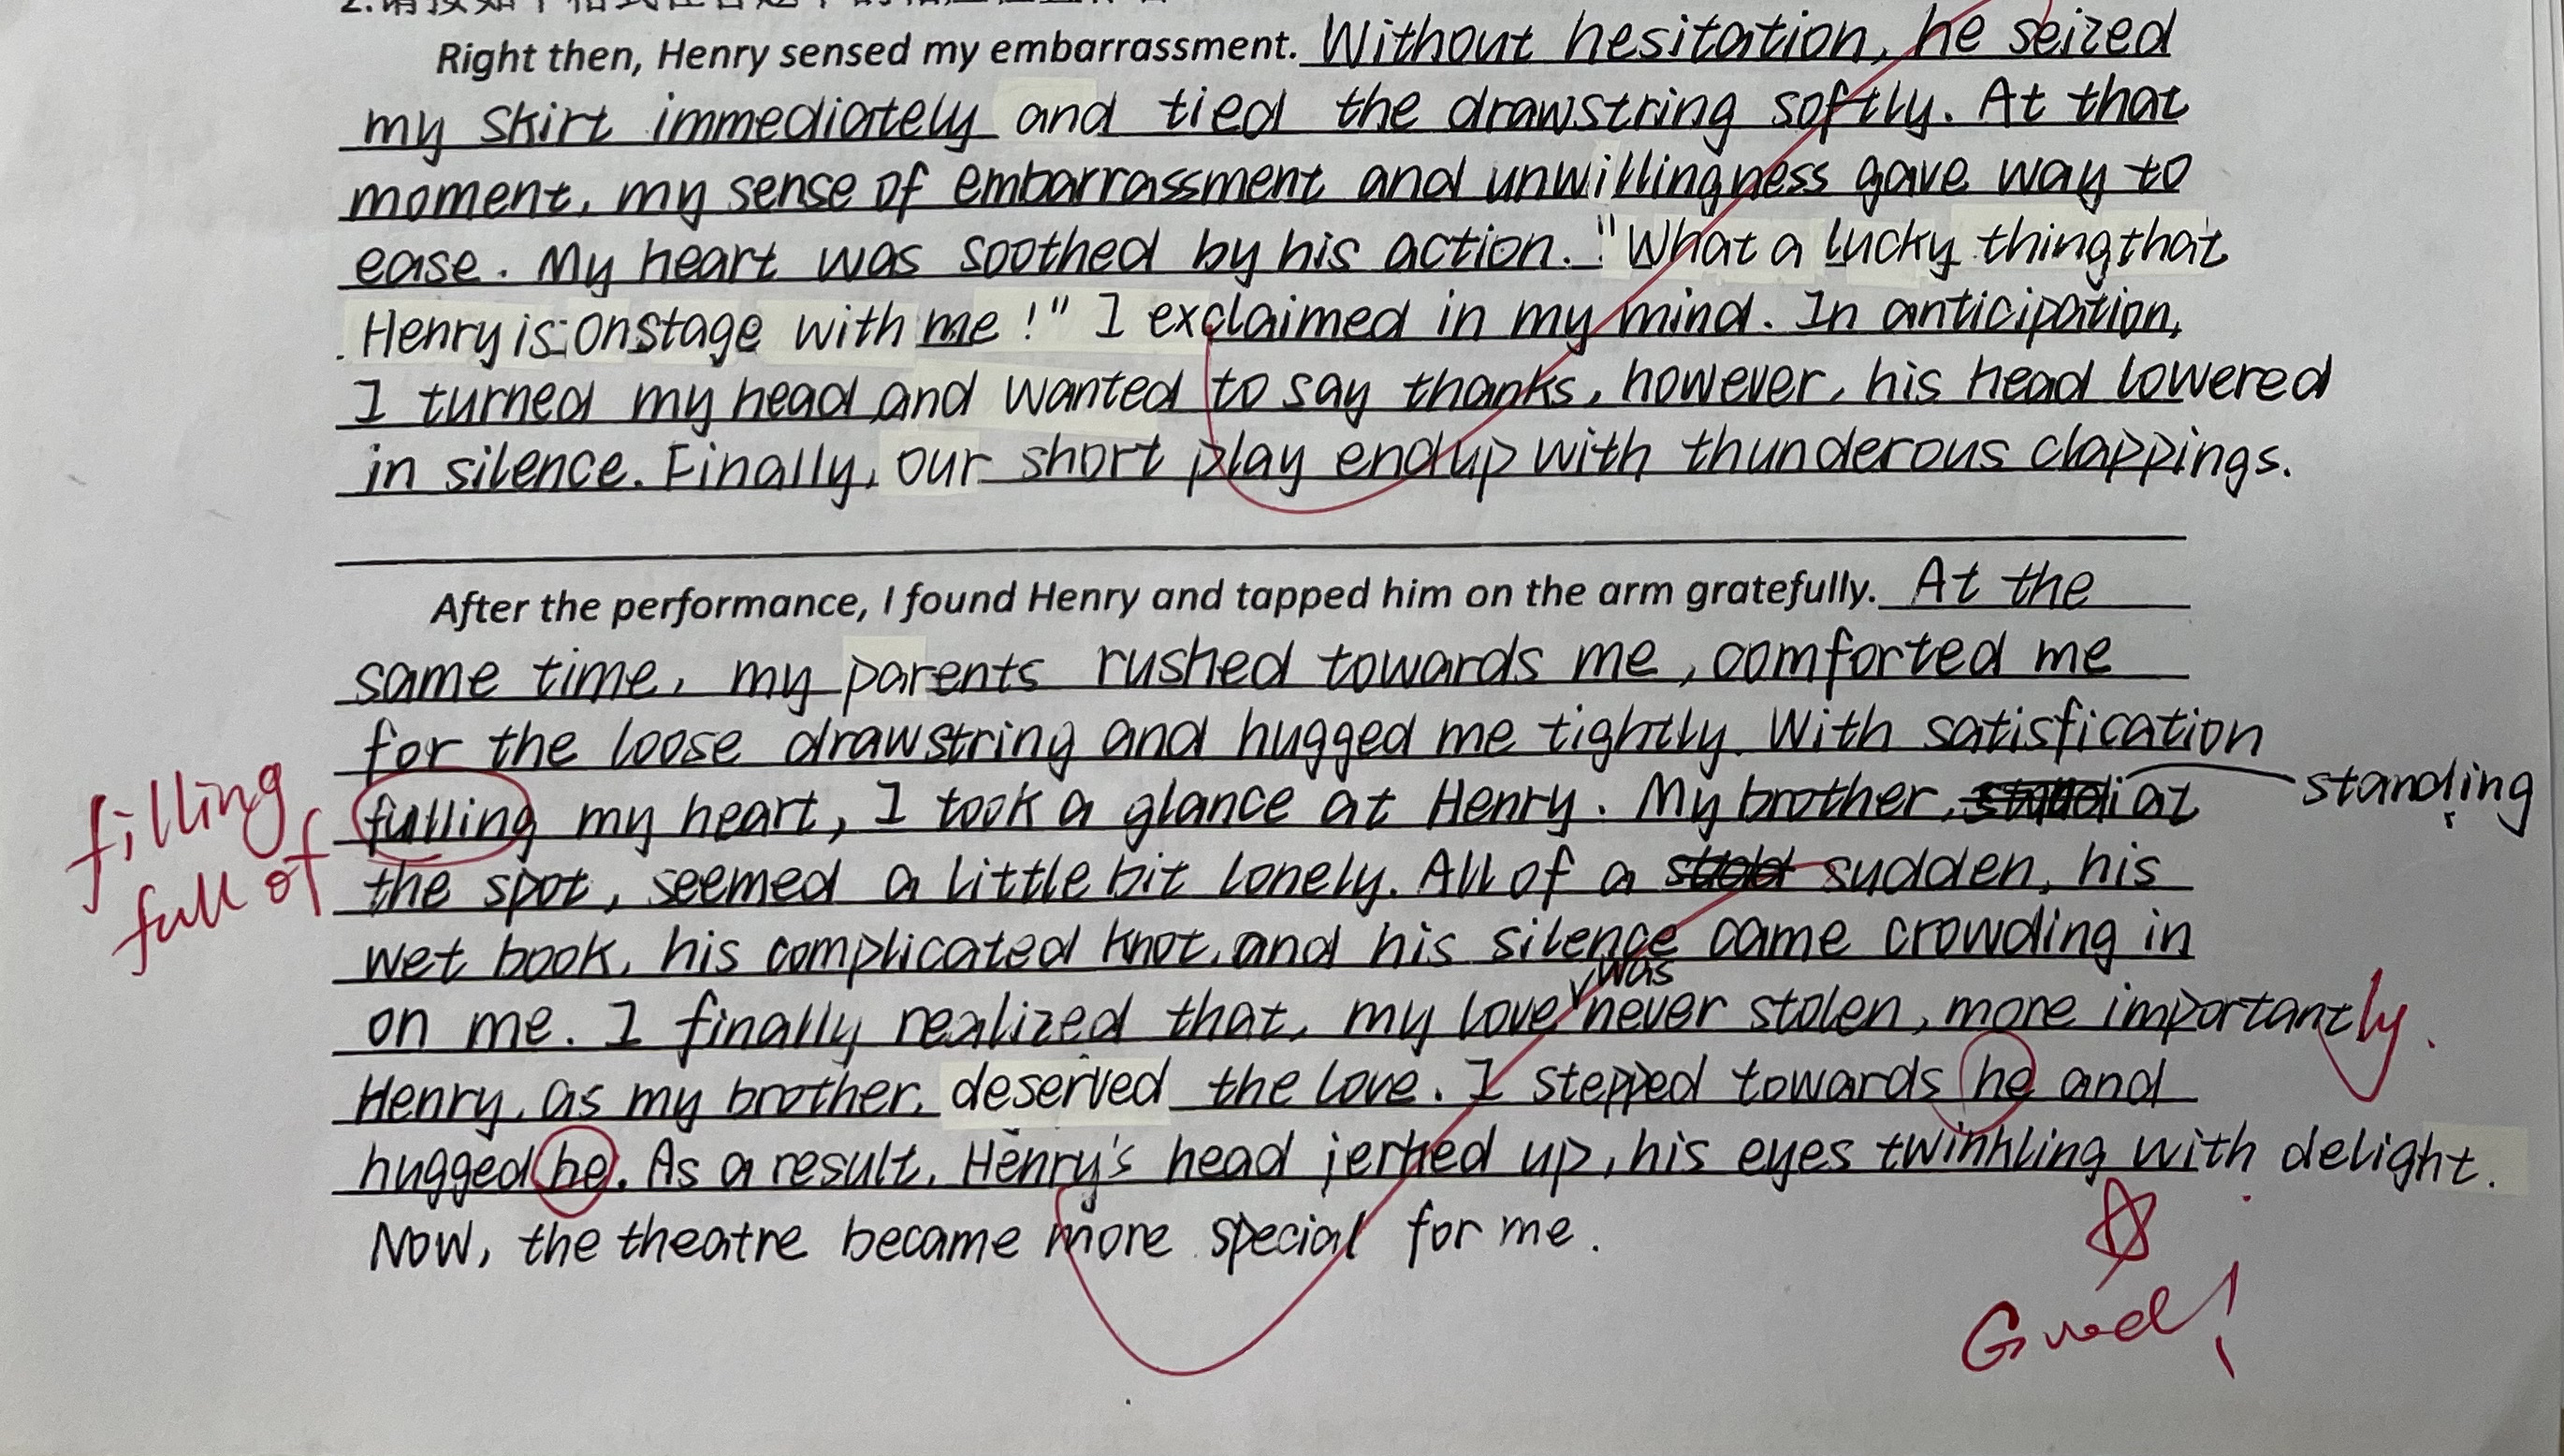 Right then, Henry sensed my embarrassment. Without hesitation, he seized
my skirt immediately and tied the drawstring softly. At that
moment, my sense of embarrassment and unwillingness gave way to
ease. My heart was soothed by his action. "What a lucky thing that
Henry is on stage with me!" I exclaimed in my mind. In anticipation,
I turned my head and wanted to say thanks, however, his head lowered
in silence. Finally, our short play end up with thunderous clappings.
After the performance, I found Henry and tapped him on the arm gratefully. At the
same time, my parents rushed towards me, comforted me
for the loose drawstring and hugged me tightly. With satisfication
filling
fulling my heart, I took a glance at Henry. My brother, at
standing
full of
the spot, seemed a little bit lonely. All of a sudden, his
wet book, his complicated knot, and his silence came crowding in
was
on me. I finally realized that, my love never stolen, more important
ly.
Henry, as my brother, deserved the love. I stepped towards he and
hugged he. As a result, Henry's head jerked up, his eyes twinkling with delight.
Now, the theatre became more special for me.
Good!